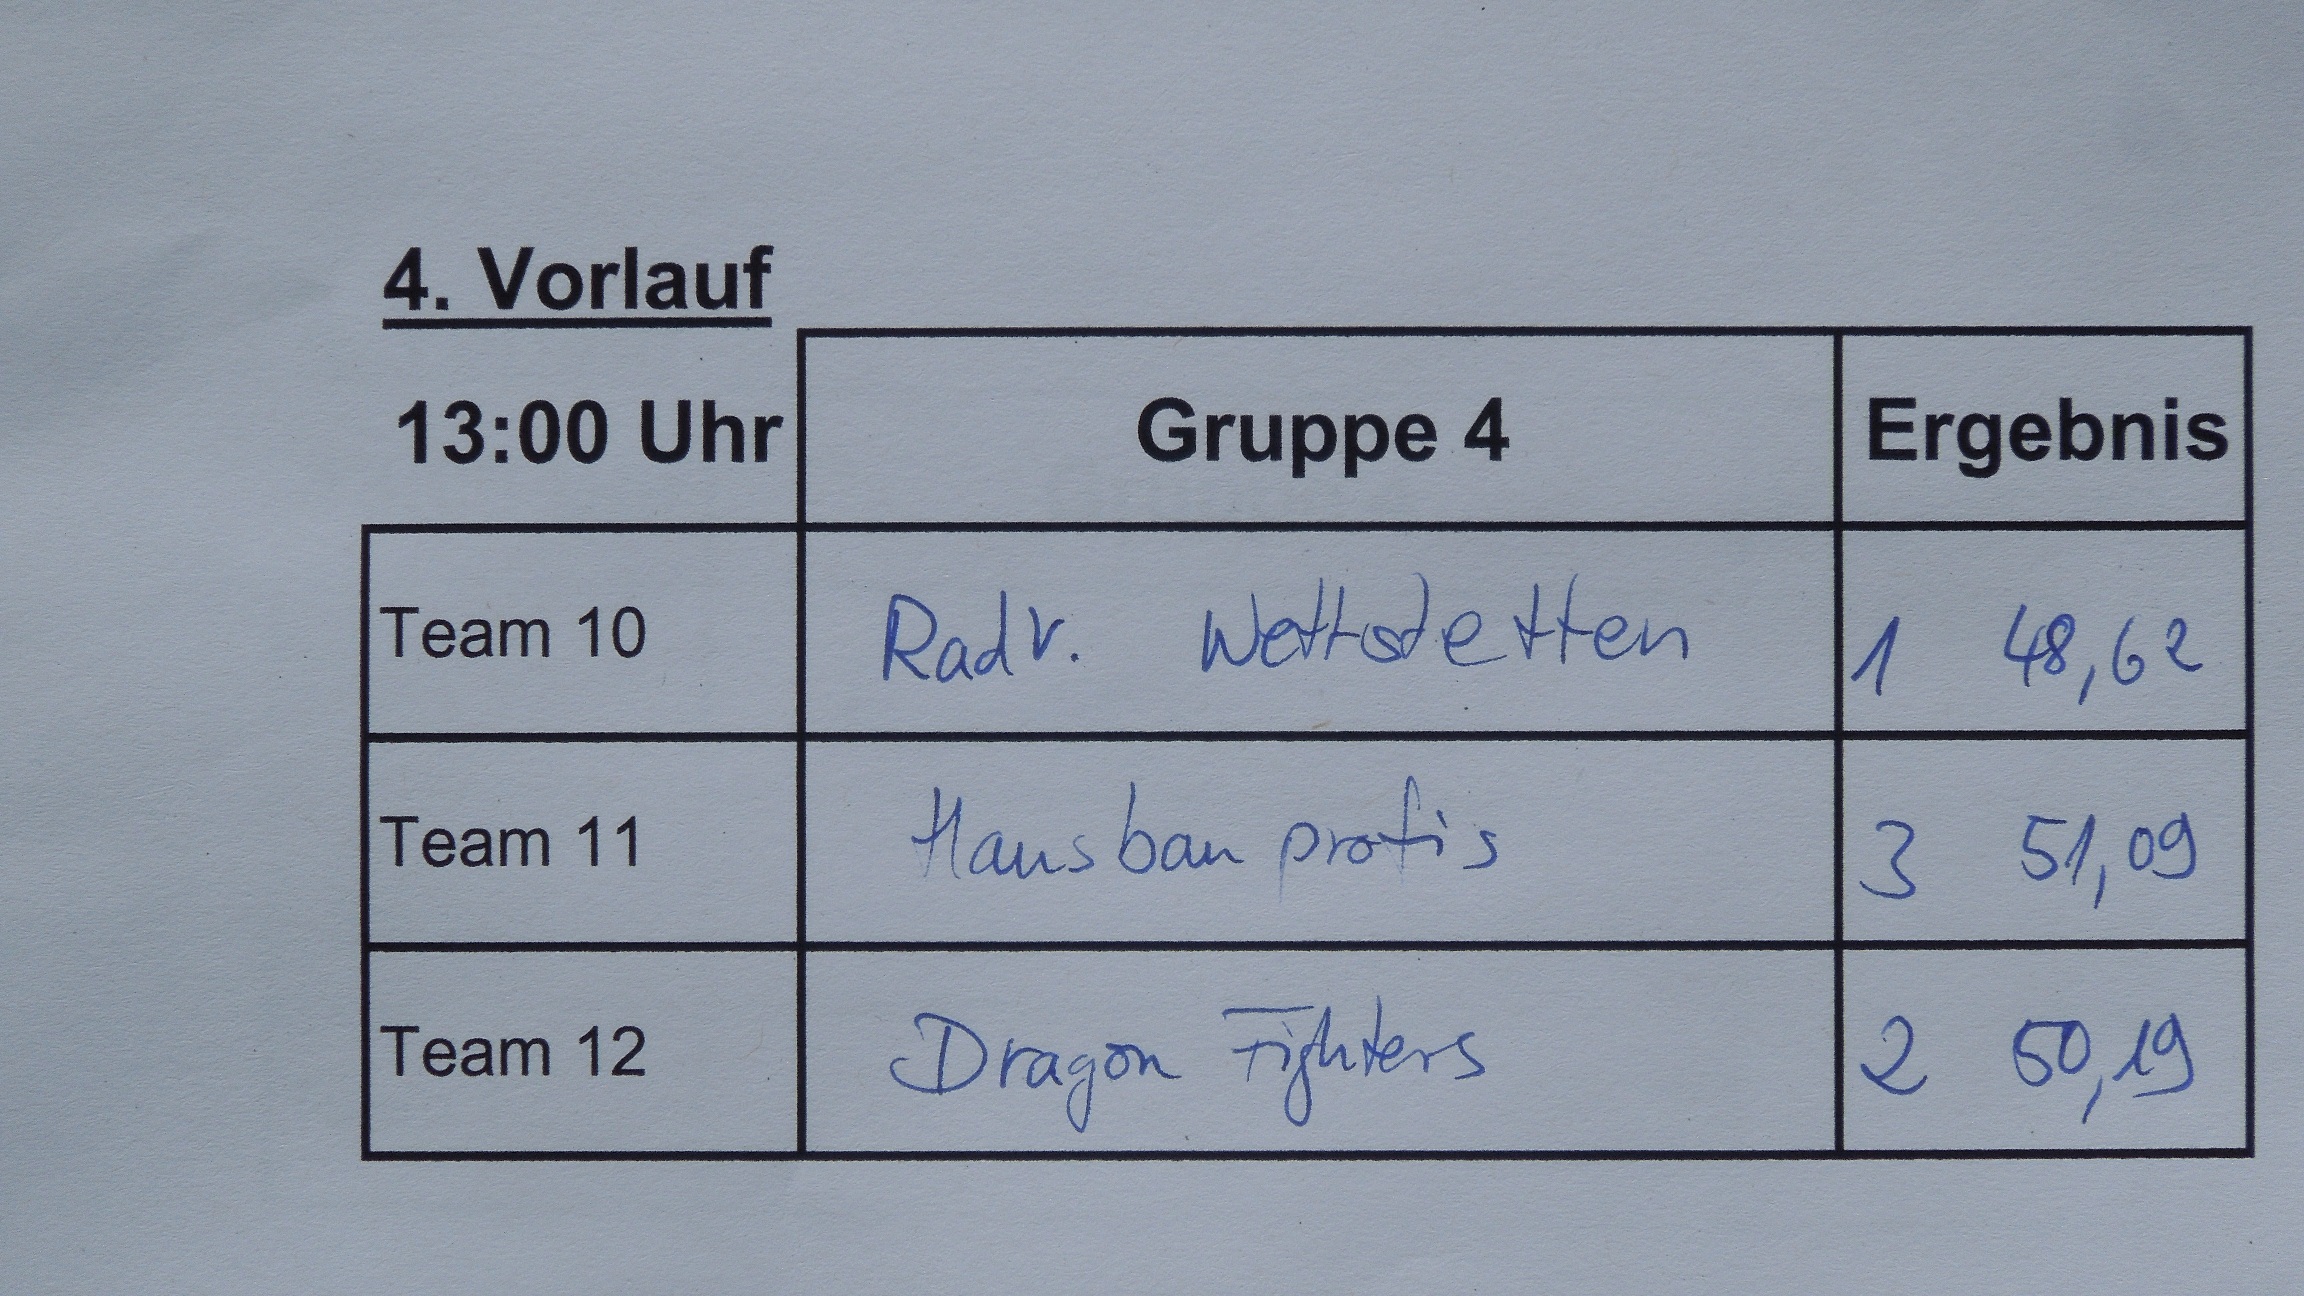 4. Vorlauf
13:00 Uhr Gruppe 4 Ergebnis
Team 10 Radv. Wettstetten 1 48,62
Team 11 Hausbauprofis 3 51,09
Team 12 Dragon Fighters 2 50,19